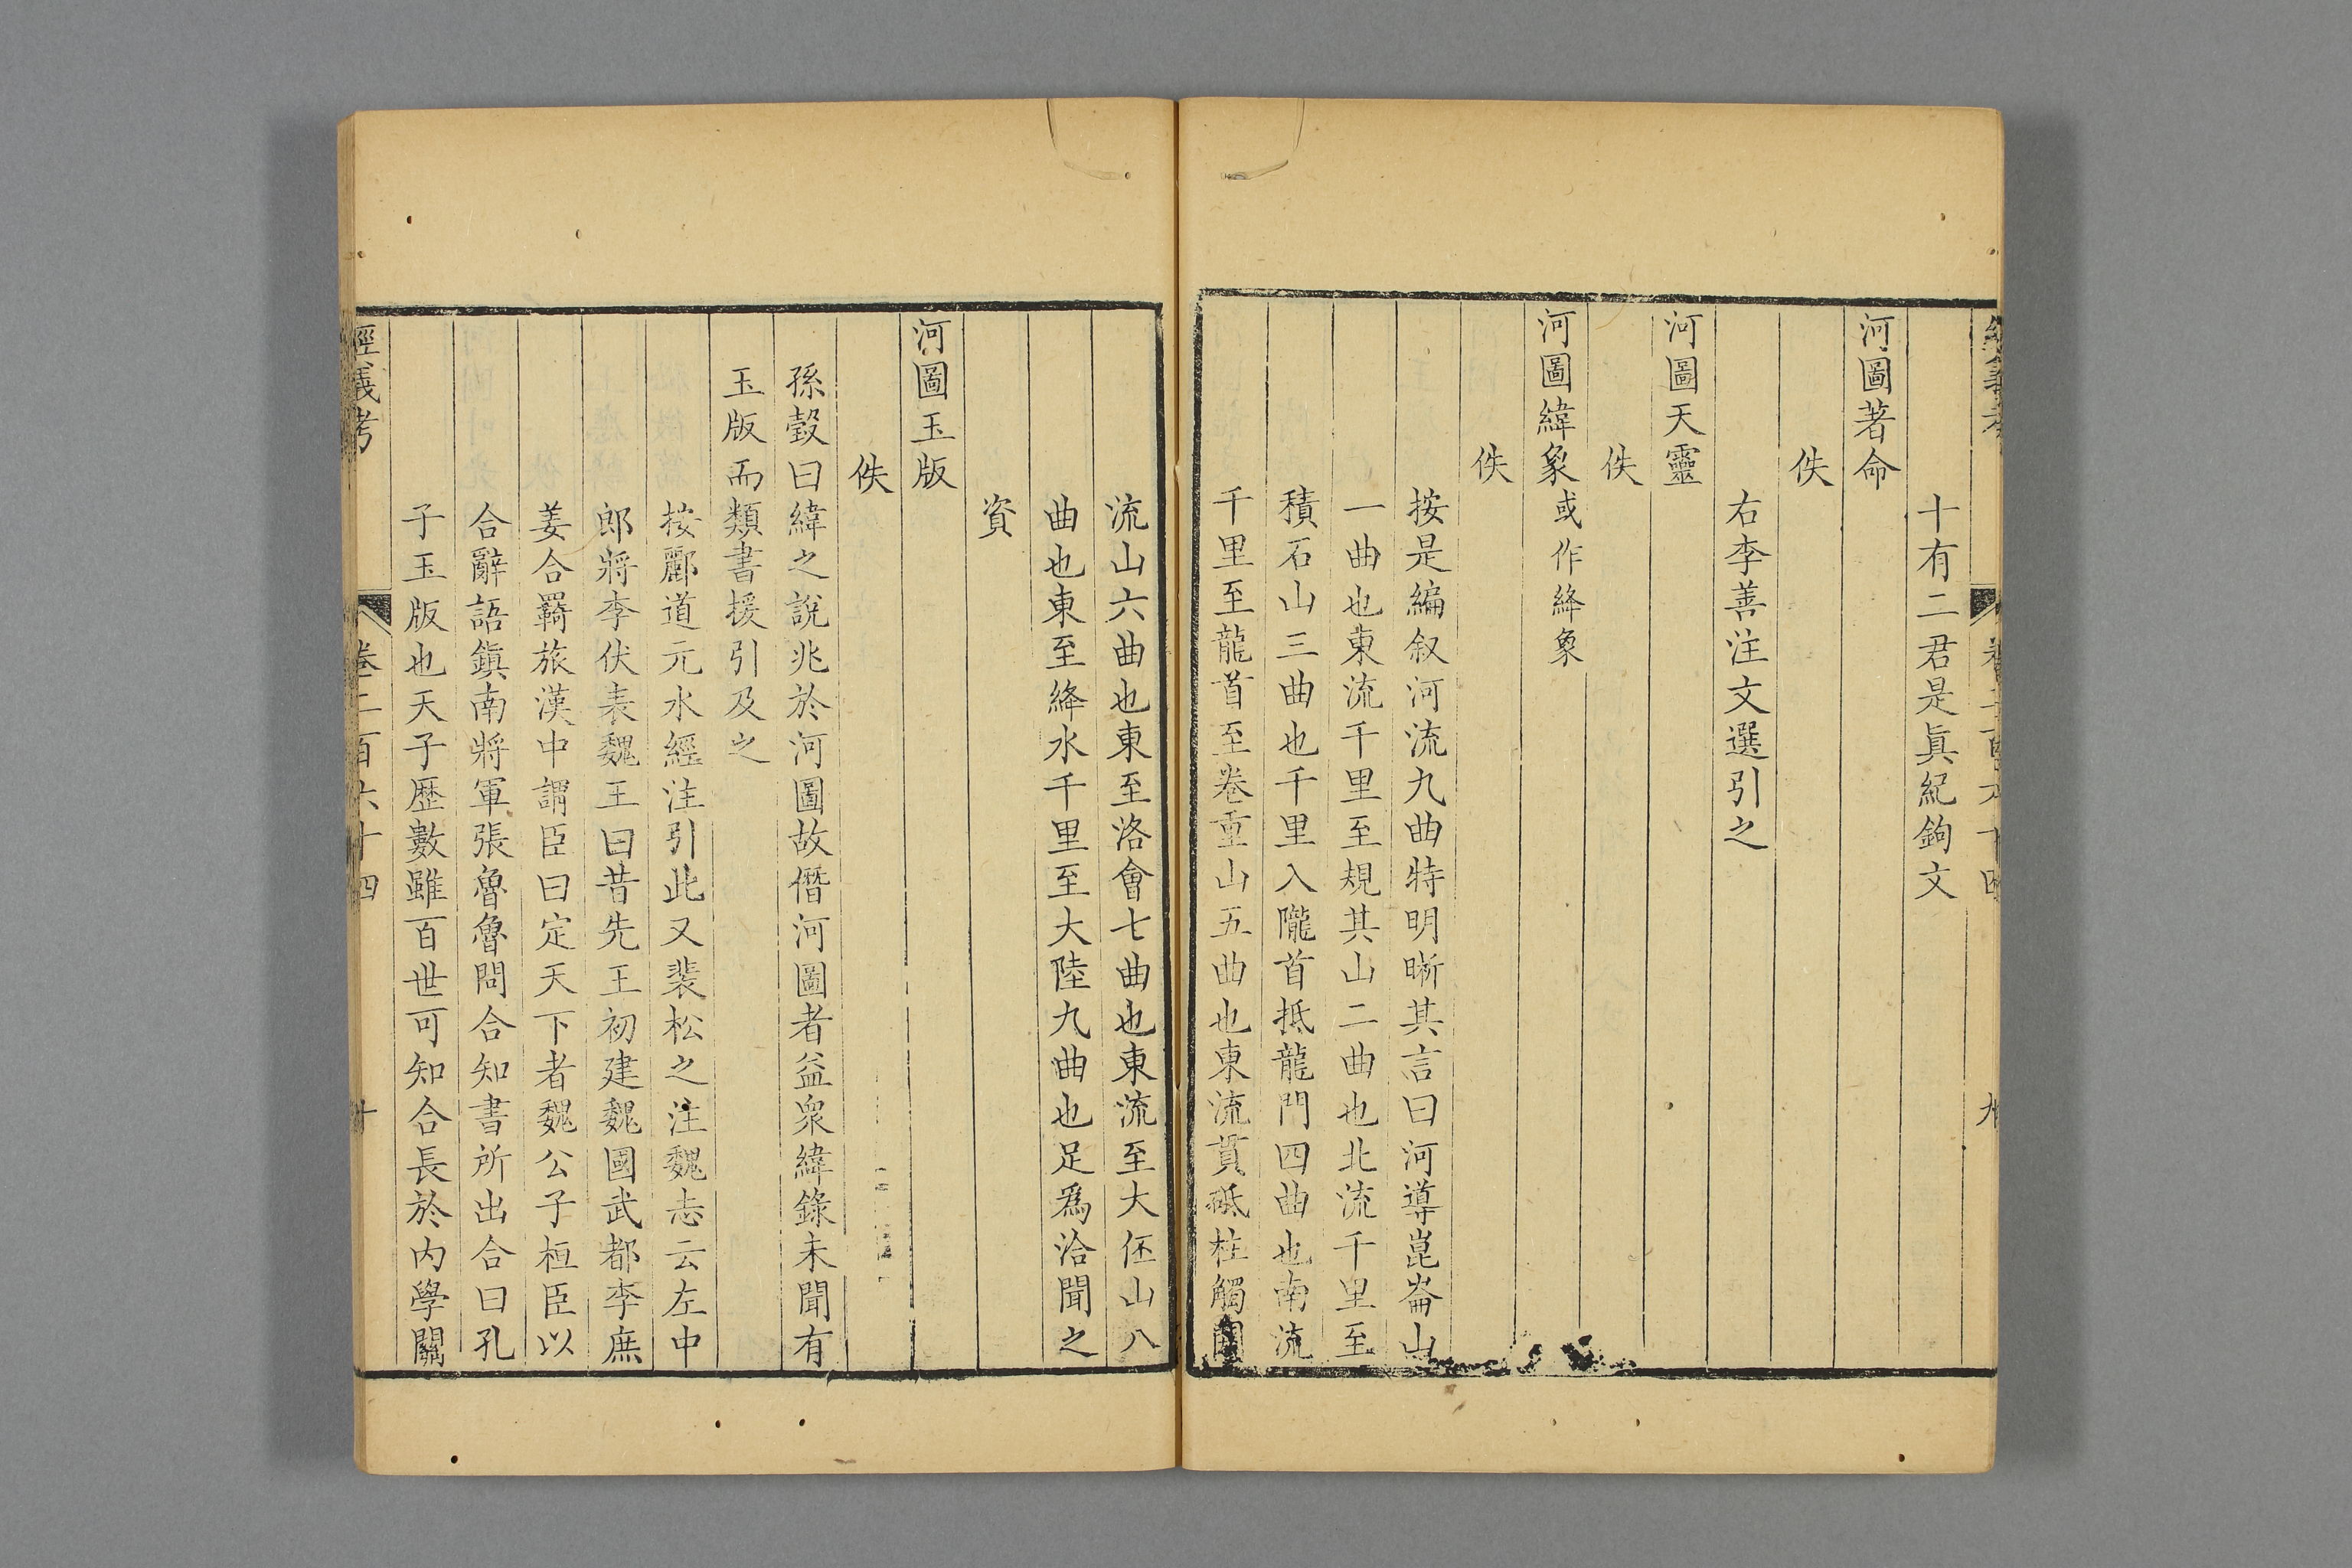 十有二君是眞紀鉤文
河圖著命
佚
右李善注文選引之
河圖天靈
佚
河圖緯象或作絳象
佚
按是編叙河流九曲特明晰其言曰河導崑崙山
一曲也東流千里至規其山二曲也北流千里至
積石山三曲也千里入隴首抵龍門四曲也南流
千里至龍首至卷重山五曲也東流貫砥柱觸閼
流山六曲也東至洛會七曲也東流至大伾山八
曲也東至絳水千里至大陸九曲也足爲洽聞之
資
河圖玉版
佚
孫瑴曰緯之說兆於河圖故僭河圖者益衆緯錄未聞有
玉版而類書援引及之
按酈道元水經注引此又裴松之注魏志云左中
郎將李伏表魏王曰昔先王初建魏國武都李庶
姜合羇旅漢中謂臣曰定天下者魏公子桓臣以
合辭語鎭南將軍張魯魯問合知書所出合曰孔
子玉版也天子歷數雖百世可知合長於内學關
經義考
卷二百六十四
十